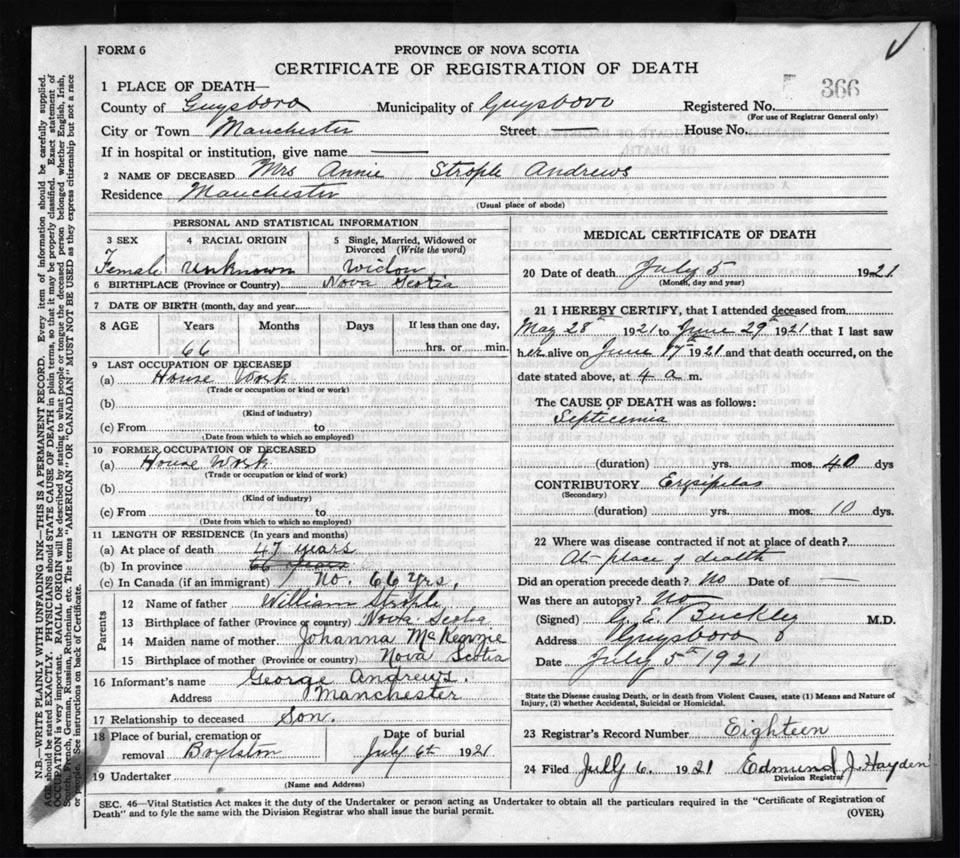 FORM 6
PROVINCE OF NOVA SCOTIA
CERTIFICATE OF REGISTRATION OF DEATH
366
1 PLACE OF DEATH—
County of Guysboro Municipality of Guysboro Registered No.
(For use of Registrar General only)
City or Town Manchester Street — House No.
If in hospital or institution, give name —
2 NAME OF DECEASED Mrs Annie Strople Andrews
Residence Manchester
(Usual place of abode)
PERSONAL AND STATISTICAL INFORMATION
3 SEX 4 RACIAL ORIGIN 5 Single, Married, Widowed or Divorced (Write the word)
Female Unknown Widow
6 BIRTHPLACE (Province or Country) Nova Scotia
7 DATE OF BIRTH (month, day and year)
8 AGE Years Months Days If less than one day,
66 hrs. or min.
9 LAST OCCUPATION OF DECEASED
(a) House Work
(Trade or occupation or kind or work)
(b)
(Kind of industry)
(c) From to
(Date from which to which so employed)
10 FORMER OCCUPATION OF DECEASED
(a) House Work
(Trade or occupation or kind or work)
(b)
(Kind of industry)
(c) From to
(Date from which to which so employed)
11 LENGTH OF RESIDENCE (In years and months)
(a) At place of death 47 years
(b) In province 66 years
(c) In Canada (if an immigrant) No. 66 Yrs.
Parents
12 Name of father William Strople
13 Birthplace of father (Province or country) Nova Scotia
14 Maiden name of mother Johanna McKenzie
15 Birthplace of mother (Province or country) Nova Scotia
16 Informant's name George Andrews.
Address Manchester
17 Relationship to deceased Son.
18 Place of burial, cremation or removal Boylston Date of burial July 6th 1921
19 Undertaker
(Name and Address)
MEDICAL CERTIFICATE OF DEATH
20 Date of death July 5 1921
(Month, day and year)
21 I HEREBY CERTIFY, that I attended deceased from
May 28th 1921 to June 29th 1921 that I last saw
her alive on June 17th 1921 and that death occurred, on the
date stated above, at 4 a m.
The CAUSE OF DEATH was as follows:
Septicemia
(duration) yrs. mos. 40 dys
CONTRIBUTORY Erysipelas
(Secondary)
(duration) yrs. mos. 10 dys.
22 Where was disease contracted if not at place of death?
At place of death
Did an operation precede death? No Date of —
Was there an autopsy? No
(Signed) G. E. Buckley M.D.
Address Guysboro
Date July 5th 1921
State the Disease causing Death, or in death from Violent Causes, state (1) Means and Nature of
Injury, (2) whether Accidental, Suicidal or Homicidal.
23 Registrar's Record Number Eighteen
24 Filed July 6. 1921 Edmund J. Hayden
Division Registrar
SEC. 46—Vital Statistics Act makes it the duty of the Undertaker or person acting as Undertaker to obtain all the particulars required in the "Certificate of Registration of
Death" and to fyle the same with the Division Registrar who shall issue the burial permit.
(OVER)
N.B.—WRITE PLAINLY WITH UNFADING INK—THIS IS A PERMANENT RECORD. Every item of information should be carefully supplied.
AGE should be stated EXACTLY. PHYSICIANS should STATE CAUSE OF DEATH in plain terms, so that it may be properly classified. Exact statement of
OCCUPATION is very important. RACIAL ORIGIN will be described by stating to what people or tongue the deceased person belonged whether English, Irish,
Scotch, French, German, Russian, Ruthenian, etc. The terms "AMERICAN" OR "CANADIAN" MUST NOT BE USED as they express citizenship but not a race
or people. See instructions on back of Certificate.